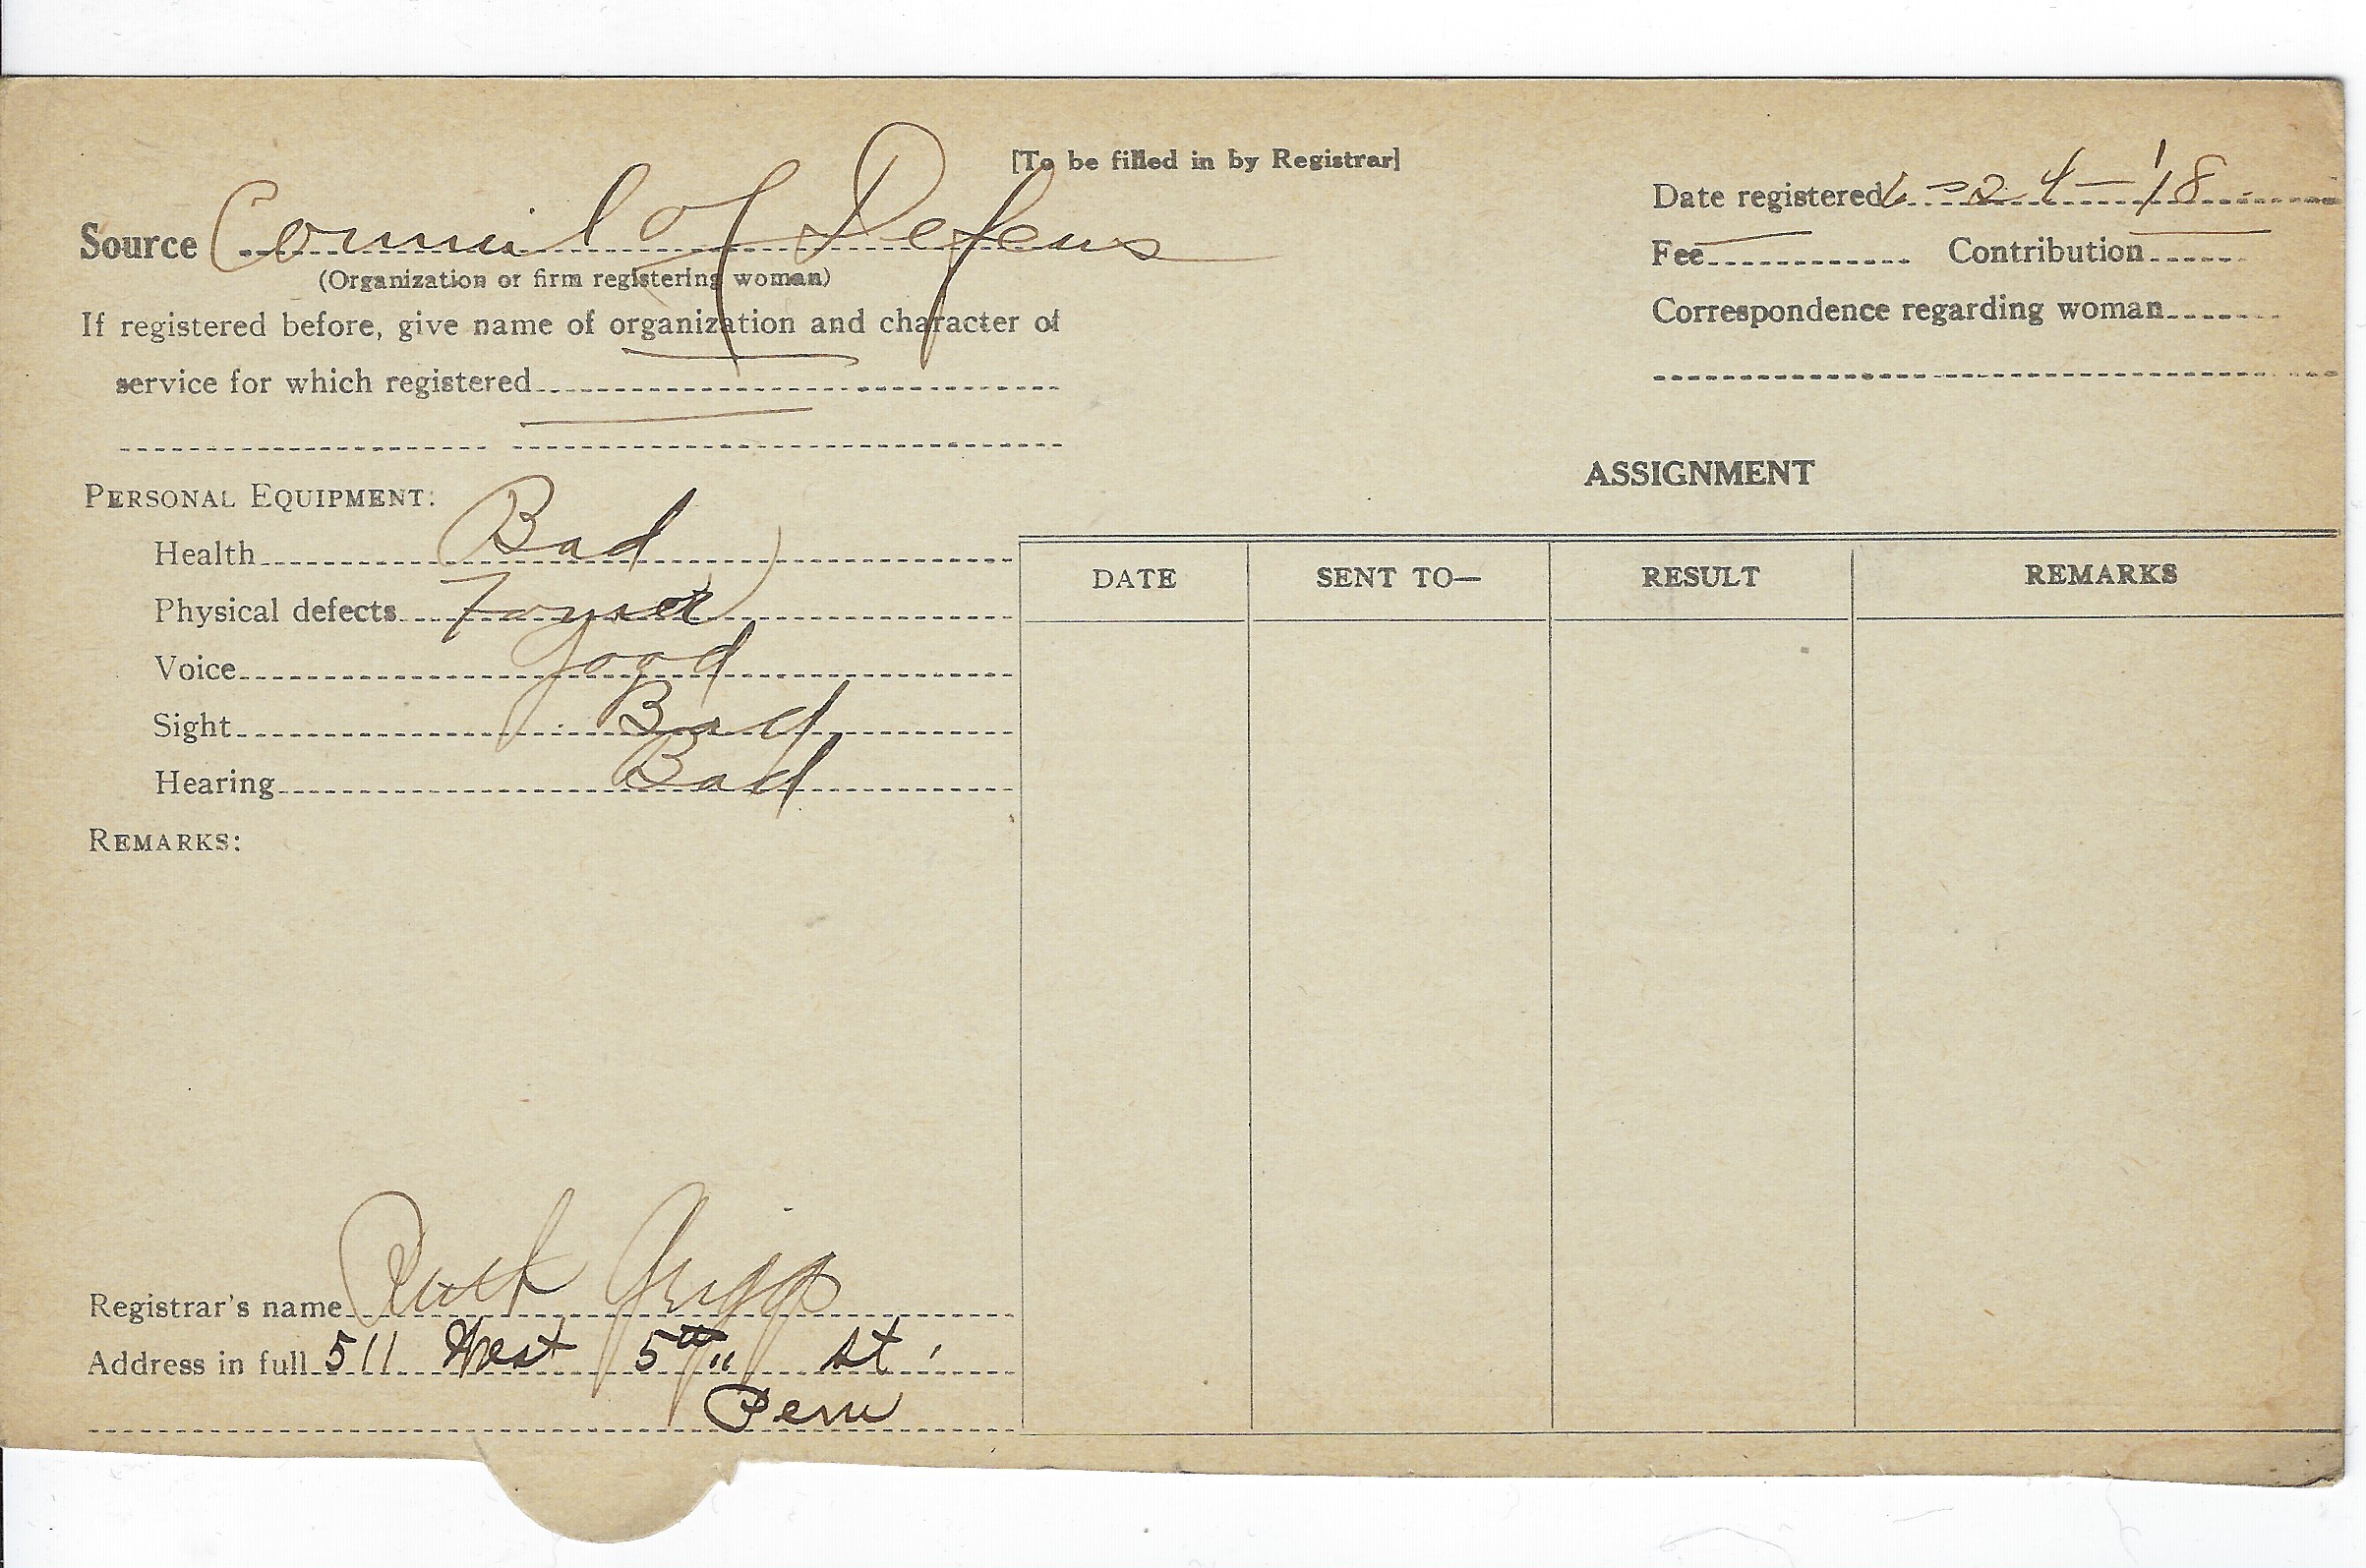 [To be filled in by Registrar]
Source Council of Defens
(Organization or firm registering woman)
If registered before, give name of organization and character of
service for which registered
Date registered 6-24-'18
Fee Contribution
Correspondence regarding woman
PERSONAL EQUIPMENT:
Health Bad
Physical defects
Voice good
Sight Bad
Hearing Bad
REMARKS:
ASSIGNMENT
DATE SENT TO— RESULT REMARKS
Registrar's name Ruth Griggs
Address in full 511 West 5th st.
Peru